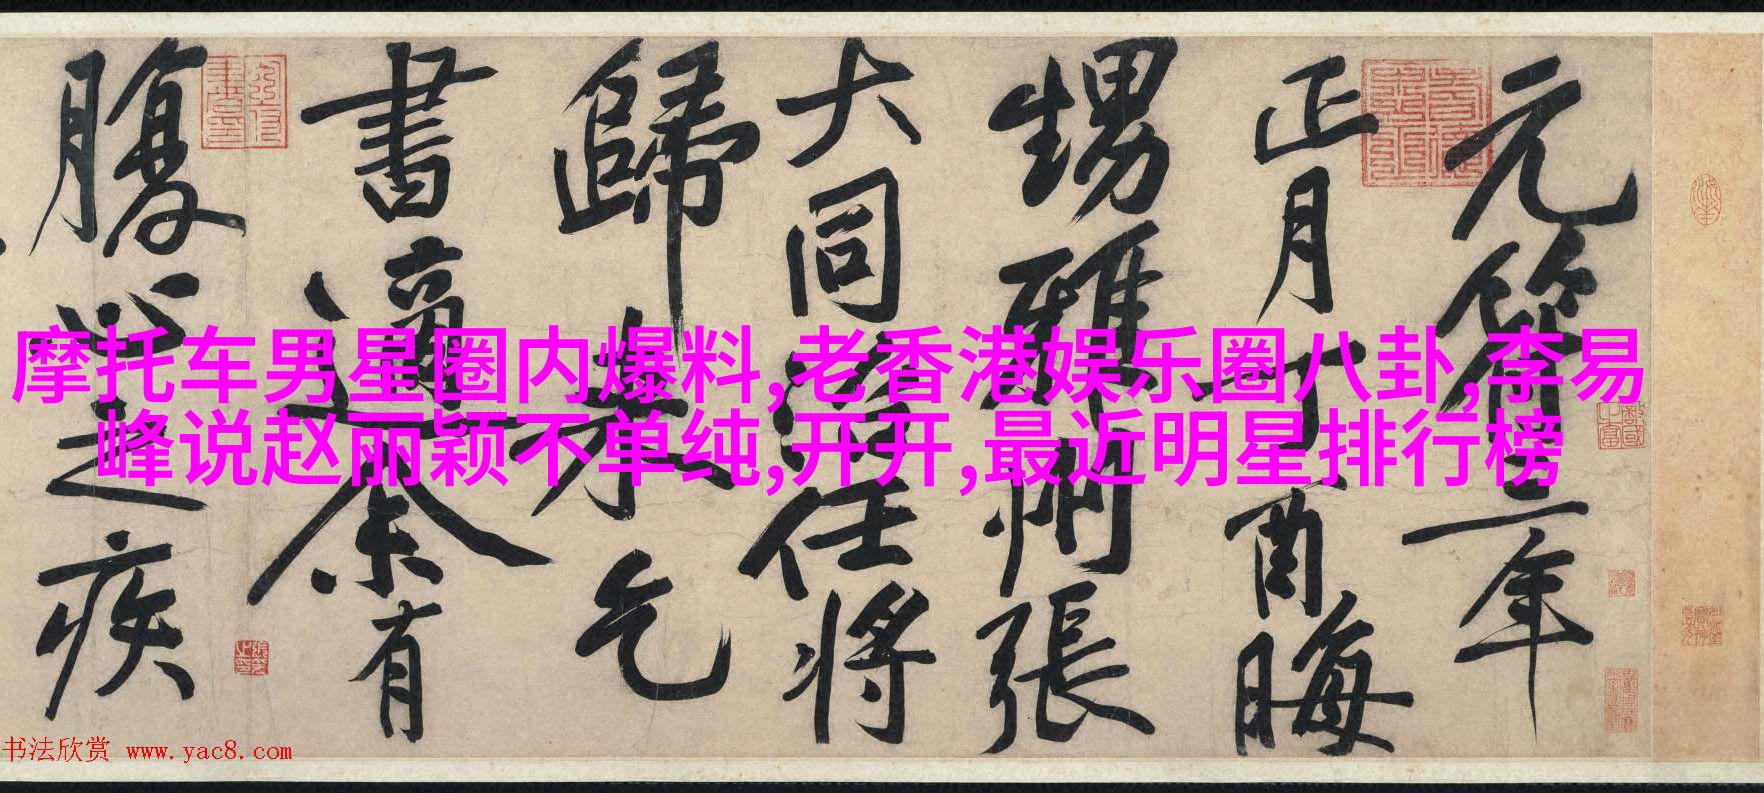 元符三年
正月丁酉晦
甥雅州張
大同治任將
歸來乞
書適余有
腹心之疾
摩托车男星圈内爆料,老香港娱乐圈八卦,李易
峰说赵丽颖不单纯,开开,最近明星排行榜
书法欣赏 www.yac8.com